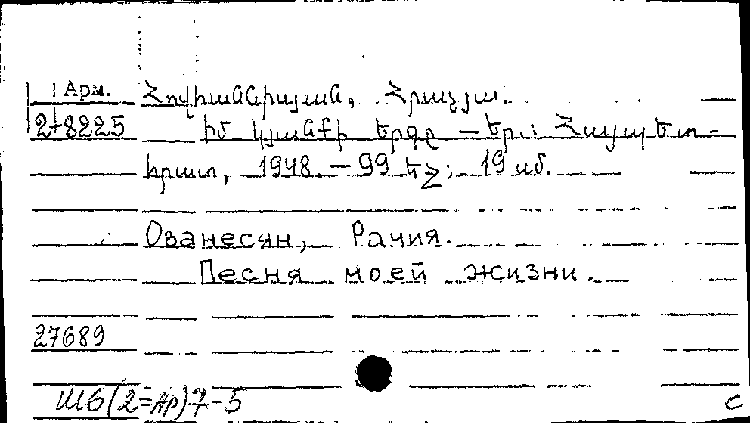 Арм. Հովհաննիսյան, Հրաչյա.
2-8225 Իմ կյանքի երգը — Եր.: Հայպետ-
հրատ, 1948. — 99 եջ; 19 սմ.
Ованесян, Рачия.
Песня моей жизни.
27689
Ш6(2=Ар)7-5 С